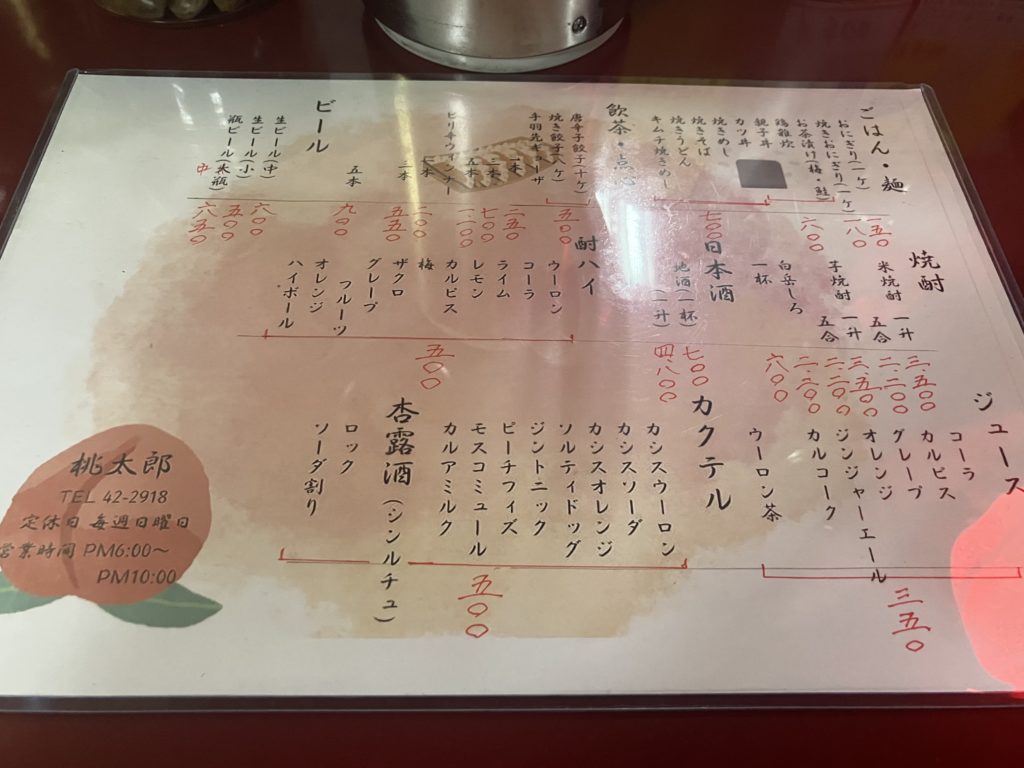 ごはん・麺
おにぎり(一ケ) 一五〇
焼きおにぎり(一ケ) 一八〇
お茶漬け(梅・鮭)
鶏雑炊
六〇〇
親子丼
カツ丼
焼きめし
焼きそば
焼きうどん
キムチ焼きめし
七〇〇
飲茶・点心
唐辛子餃子(十ケ)
焼き餃子(八ケ)
五〇〇
手羽先ギョーザ
二五〇
五本
七〇〇
ピリ辛ウィンナー
五五〇
五本 九〇〇
ビール
生ビール(中) 六〇〇
生ビール(小) 五〇〇
瓶ビール(大瓶) 中 六五〇
焼酎
米焼酎 一升 三.五〇〇
五合 二.二〇〇
芋焼酎 一升 三.五〇〇
五合 二.二〇〇
白岳しろ 二.二〇〇
一杯 六〇〇
日本酒
地酒(一杯) 七〇〇
(一升) 四.八〇〇
酎ハイ
ウーロン
コーラ
ライム
レモン
カルピス
梅
ザクロ
グレープ
フルーツ
オレンジ
ハイボール
五〇〇
ジュース
コーラ
カルピス
グレープ
オレンジ
ジンジャーエール
カルコーク
ウーロン茶
三五〇
カクテル
カシスウーロン
カシスソーダ
カシスオレンジ
ソルティドッグ
ジントニック
ピーチフィズ
モスコミュール
カルアミルク
杏露酒(シンルチュ)
ロック
ソーダ割り
五〇〇
桃太郎
TEL 42-2918
定休日 毎週日曜日
営業時間 PM6:00〜
PM10:00